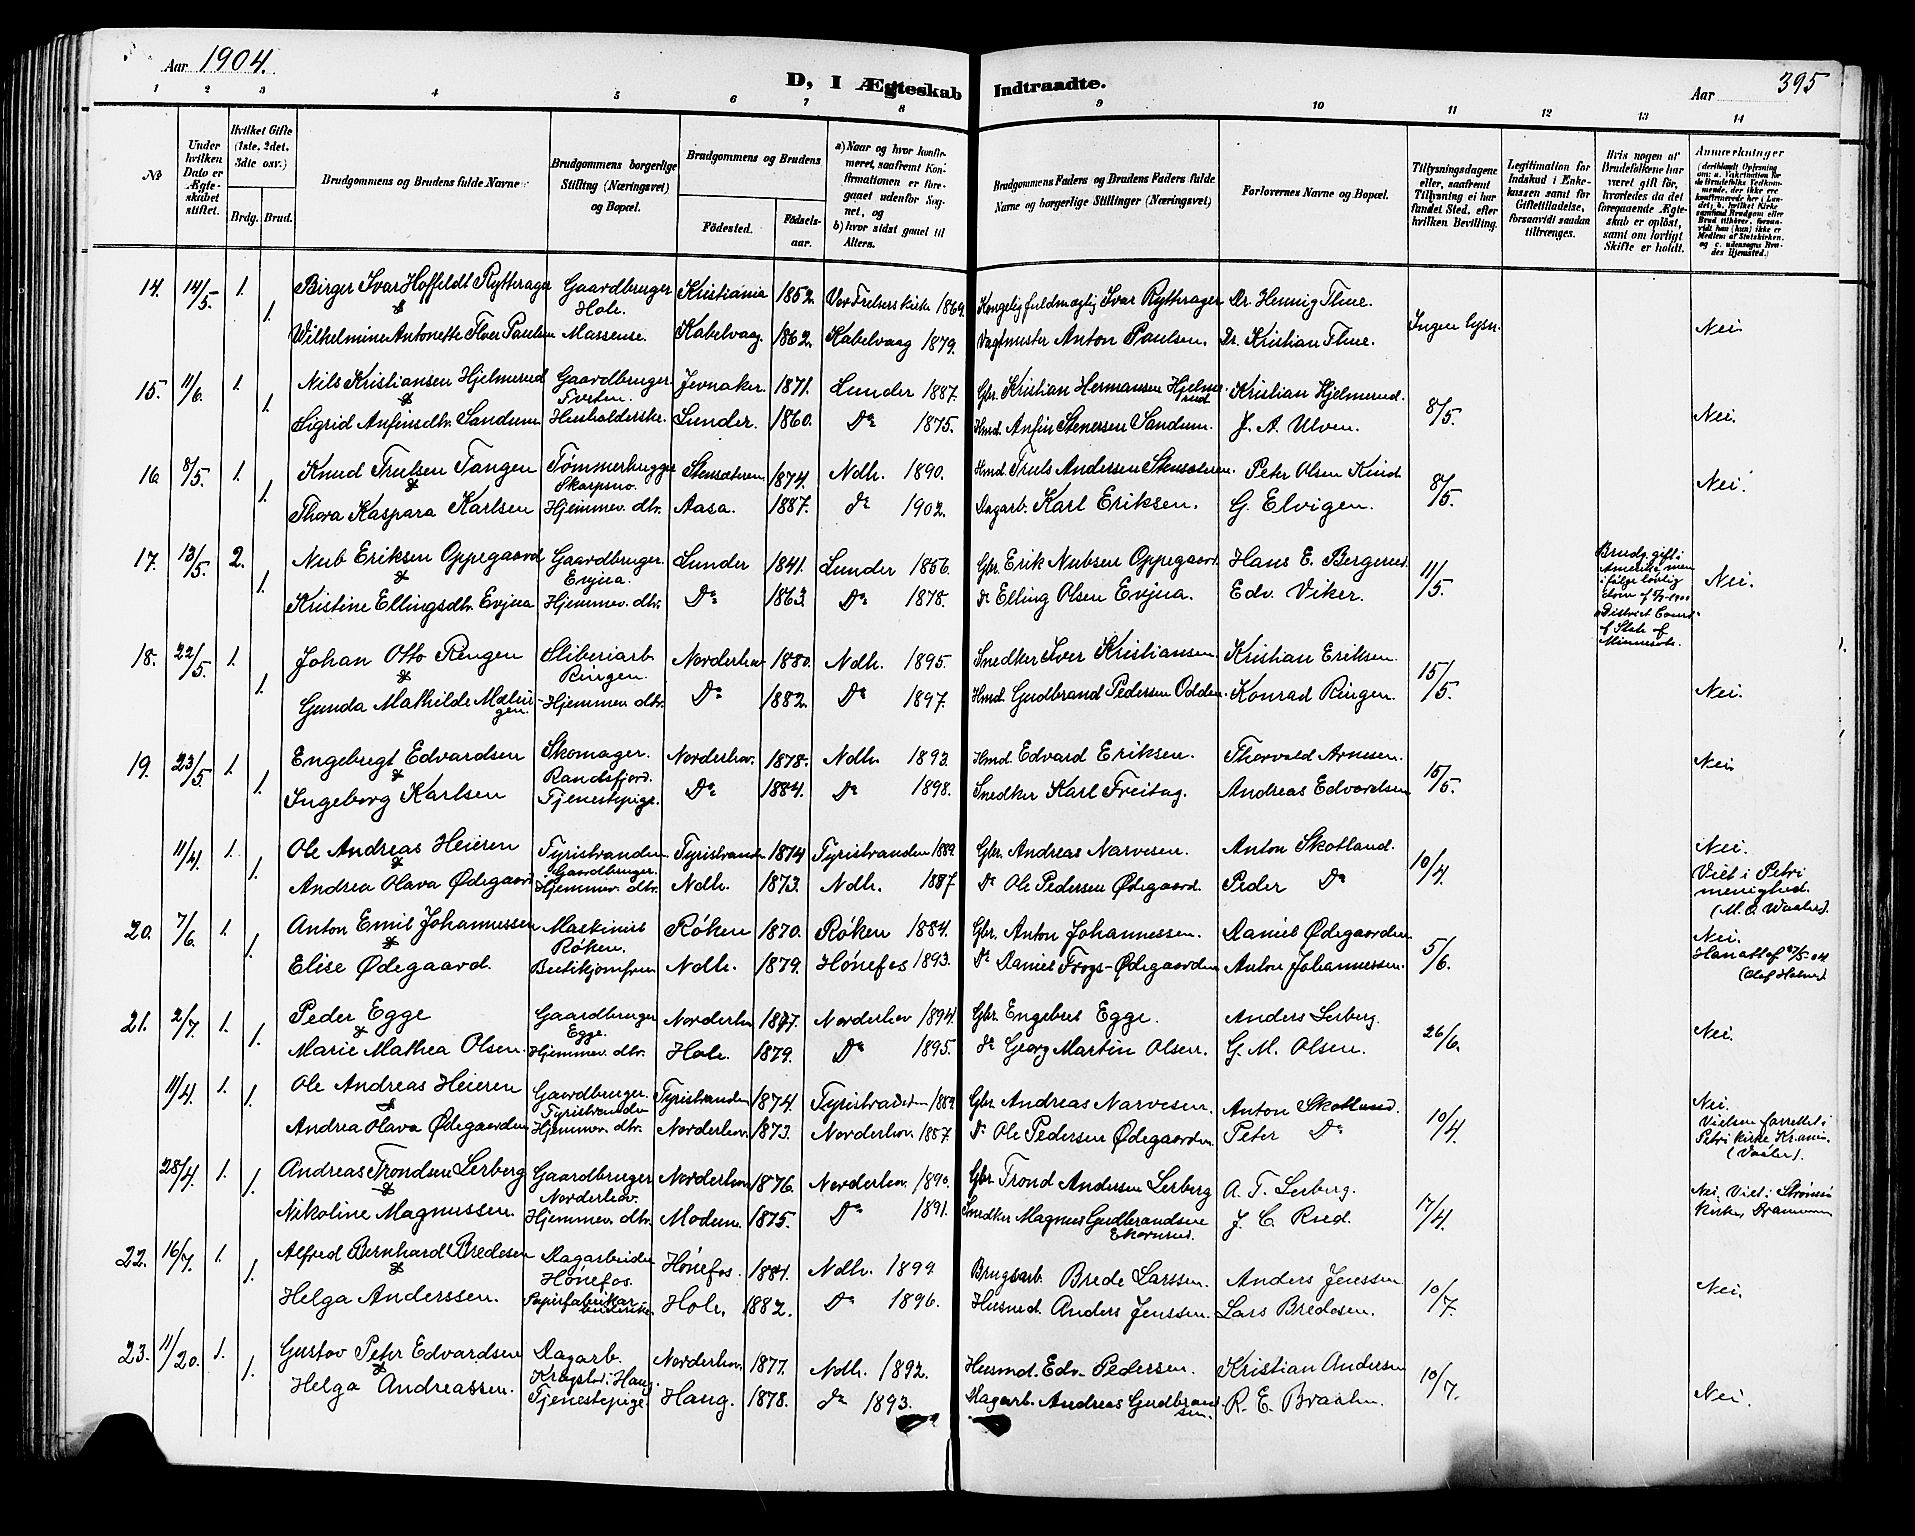 Aar 1904.
D, I Ægteskab Indtraadte.
Aar 395
1 2 3 4 5 6 7 8 9 10 11 12 13 14
No
Under hvilken Dato er Ægteskabet stiftet.
Hvilket Gifte (1ste, 2det, 3die osv.)
Brdg. Brud.
Brudgommens og Brudens fulde Navne
Brudgommens borgerlige Stilling (Næringsvei) og Bopæl.
Brudgommens og Brudens
Fødested.
Fødselsaar.
a) Naar og hvor konfirmeret, saafremt Konfirmationen er foregaaet udenfor Sognet, og
b) hvor sidst gaaet til Alters.
Brudgommens Faders og Brudens Faders fulde Navne og borgerlige Stillinger (Næringsvei)
Forlovernes Navne og Bopæl.
Tillysningsdagene eller, saafremt Tillysning ei har fundet Sted, efter hvilken Bevilling.
Legitimation for Indskud i Enkekassen samt for Giftetilladelse, forsaavidt saadan tiltrænges.
Hvis nogen af Brudefolkene har været gift før, hvorledes da det foregaaende Ægteskab er opløst, samt om lovligt Skifte er holdt.
Anmærkninger
14. 14/5. 1. Birger Ivar Hoffeldt Rytterager Gaardbruger Kristiania 1852. Vor Frelsers Kirke 1867. Kongelig fuldmægtig Ivar Rytterager Dr. Hennig Thue.
& Hole.
1. Wilhelmine Antonette Paulsen Massense. Kabelvaag. 1862. Kabelvaag 1879. Vagtmester Anton Paulsen. Dr. Kristian Thue. Ingen lysn. Nei
15. 11/6. 1. Nils Kristiansen Hjelmerud Gaardbruger Jevnaker. 1871. Lunder 1887. Gbr. Kristian Hermansen Hjelmerud Kristian Hjelmerud.
& Tveten.
1. Sigrid Anfinsdtr. Sandum Husholderske. Lunder. 1860. Do 1875. Hmd. Anfin Stenersen Sandum. J. A. Ulven. 8/5. Nei.
16. 8/5. 1. Knud Trulsen Tangen Tømmerhugger Stensæteren 1874. Ndh. 1890. Hmd Truls Andersen Stensæteren. Peter Olsen Kind
& Skarpsno.
1. Thora Kaspara Karlsen Hjemmev. dtr. Aasa. 1887. do 1902. Dagarb. Karl Eriksen. G. Elvigen. 8/5. Nei.
17. 13/5. 2. Nub Eriksen Oppegaard Gaardbruger. Lunder 1841. Lunder 1856. Gbr. Erik Nubsen Oppegaard Hans E. Bergerud
& Evjua.
1. Kristine Ellingsdtr. Evjua Hjemmev. dtr. Do 1863. Do 1878. do Elling Olsen Evjua. Edv. Viker. 11/5. Nei.
Brudg. gift i
Amerika, men
ifølge lovlig
District Court
of State of
Minnesota.
18. 22/5. 1. Johan Otto Ringen Sliberiarb. Norderhov 1880. Ndh. 1895. Snedker Iver Kristiansen Kristian Eriksen.
& Ringen.
1. Gunda Mathilde Hjemmev. dtr. Do 1882. Do 1897. Hmd. Gudbrand Pedersen Odden. Konrad Ringen. 15/5. Nei.
19. 23/5. 1. Engebregt Edvardsen Skomager. Norderhov. 1878. Ndh. 1893. Hmd. Edvard Eriksen. Thorvald Arnesen.
& Randsfjord.
1. Ingeborg Karlsen Tjenestepige. Do 1884. Do 1898. Snedker Karl Freitag. Andreas Edvardsen 15/5. Nei
11/4. 1. Ole Andreas Heieren Tyristranden Tyristranden 1874 Tyristranden 1889. Gbr. Andreas Narvesen. Anton Skotland.
& Gaardbruger.
1. Andrea Olava Ødegaard Hjemmev. dtr. Ndh. 1873. Ndh. 1887 Do Ole Pedersen Ødegaard. Peder Do 10/4.
Nei.
Viet i Petri
menighed.
(M. O. Waaler).
20. 7/6. 1. Anton Emil Johannessen Maskinist Røken 1870. Røken 1884. Gbr. Anton Johannessen. Daniel Ødegaarden
& Røken.
1. Elise Ødegaard. Butikjomfru Ndh. 1879. Hønefos 1893. Do Daniel Frogs-Ødegaarden Anton Johannessen. 5/6.
Nei.
(Olaf Holm).
21. 2/7. 1. Peder Egge Gaardbruger Norderhov 1877. Norderhov 1894. Gbr. Engebret Egge. Anders Lerberg.
& Egge.
1. Marie Mathea Olsen. Hjemmev. dtr. Hole. 1879. Do 1895. do Georg Martin Olsen. G. M. Olsen. 26/6. Nei.
11/4. 1. Ole Andreas Heieren Gaardbruger. Tyristranden 1874. Tyristranden 1889. Gbr. Andreas Narvesen. Anton Skotland.
& Tyristranden
1. Andrea Olava Ødegaarden Hjemmev. dtr. Norderhov. 1873. Norderhov. 1887. Do Ole Pedersen Ødegaarden Peter Do 10/4.
Nei.
Vielsen forrettet i
Petri Kirke Krania.
(Vaaler).
28/4. 1. Andreas Trondsen Lerberg Gaardbruger Norderhov 1876. Norderhov. 1890. Gbr. Trond Andersen Lerberg A. T. Lerberg.
& Norderhov.
1. Nikoline Magnussen. Hjemmev. dtr. Modum. 1875. Do 1891. Snedker Magnus Gudbrandsen Ekornrud. J. C. Rud. 17/4.
Nei. Viet i Strømsø
Kirke, Drammen
22. 16/7. 1. Alfred Bernhard Bredesen Dagarbeider Hønefos. 1884. Ndh. 1899. Brugsarb. Brede Larssen. Anders Jenssen
& Hønefos.
1. Helga Anderssen. Papirfabrikarbeiderske Hole. 1882. Do 1896. Husmd. Anders Jenssen. Lars Bredesen. 10/7. Nei.
23. 11/20. 1. Gustav Peter Edvardsen Dagarb. Norderhov. 1877. Ndh. 1892. Husmd. Edv. Pedersen. Kristian Andresen
& Haug.
1. Helga Andreassen. Tjenestepige. Haug. 1878. do 1893. Dagarb. Andreas Gudbrandsen. R. E. Braaten. 10/7. Nei